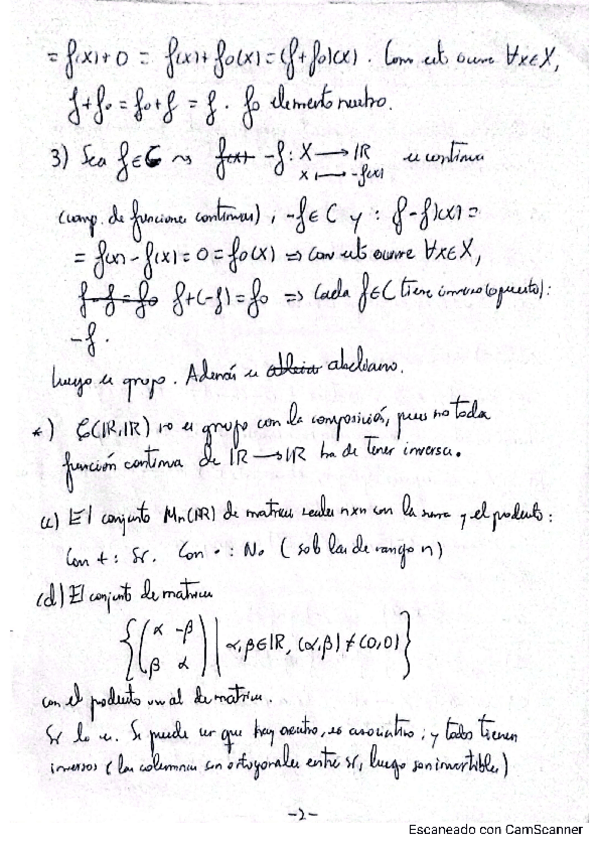 = f(x)+0 = f(x)+f₀(x)=(f+f₀)(x). Como esto ocurre ∀x∈X,
f+f₀ = f₀+f = f. f₀ elemento neutro.
3) Sea f∈C ⇝ f(x) -f: X ⟶ IR es continua
x ⟼ -f(x)
(comp. de funciones continuas), -f∈C y: (f-f)(x) =
= f(x) - f(x) = 0 = f₀(x) ⇒ Como esto ocurre ∀x∈X,
f-f=f₀ f+(-f)=f₀ ⇒ Cada f∈C tiene inverso (opuesto):
-f.
luego es grupo. Además es abeliano.
*) C(IR,IR) no es grupo con la composición, pues no toda
función continua de IR ⟶ IR ha de tener inversa.
(c) El conjunto Mn(IR) de matrices reales nxn con la suma y el producto:
Con + : Sí. Con · : No (sob las de rango n)
(d) El conjunto de matrices
{(α -β
β α) | α,β∈IR, (α,β)≠(0,0)}
con el producto usual de matrices.
Sí lo es. Se puede ver que hay neutro, es asociativo; y todos tienen
inversos (las columnas son ortogonales entre sí, luego son invertibles)
-2-
Escaneado con CamScanner